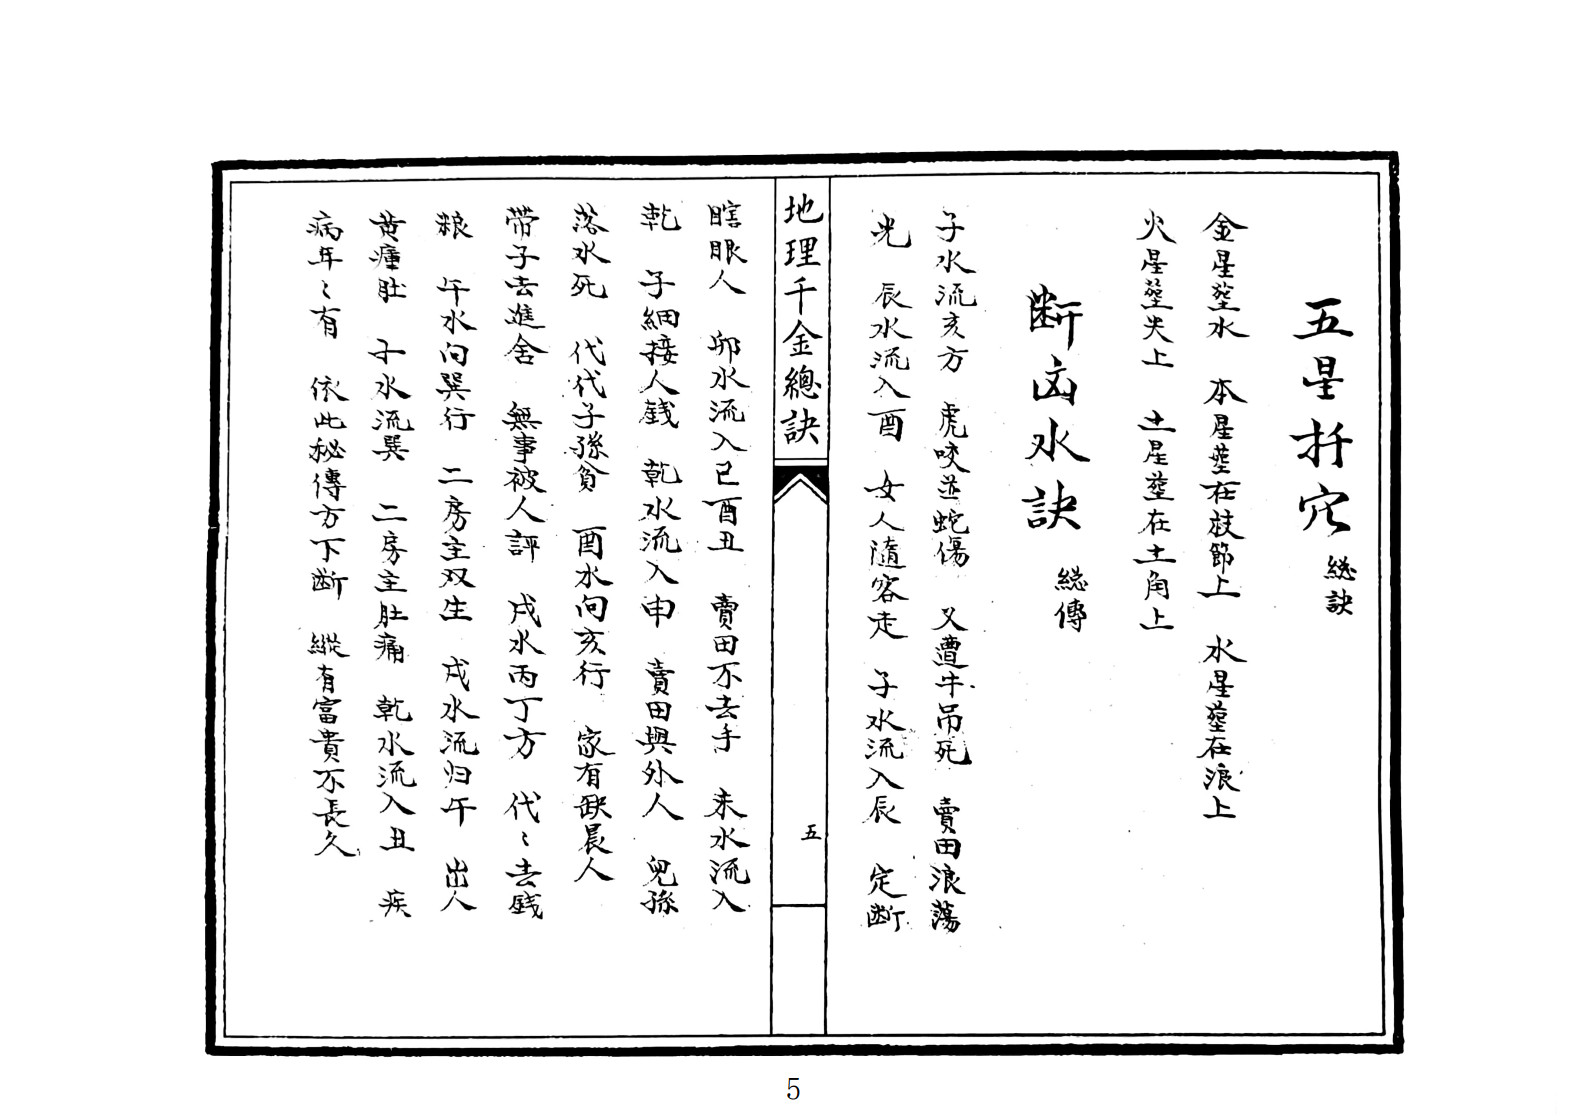 五星扦穴 総訣
金星塟水 本星塟在枝節上 水星塟在浪上
火星塟尖上 土星塟在土角上
断凶水訣 総傳
子水流亥方 虎咬並蛇傷 又遭牛吊死 賣田浪蕩
光 辰水流入酉 女人隨客走 子水流入辰 定断
地理千金總訣
五
瞎眼人 卯水流入巳酉丑 賣田不去手 来水流入
乾 子細接人錢 乾水流入申 賣田與外人 兒孫
落水死 代代子孫貧 酉水向亥行 家有缺唇人
带子去進舍 無事被人評 戌水丙丁方 代〻去錢
粮 午水向巽行 二房主双生 戌水流归午 出人
黄瘇肚 子水流巽 二房主肚痛 乾水流入丑 疾
病年〻有 依此秘傳方下断 縱有富貴不長久
5